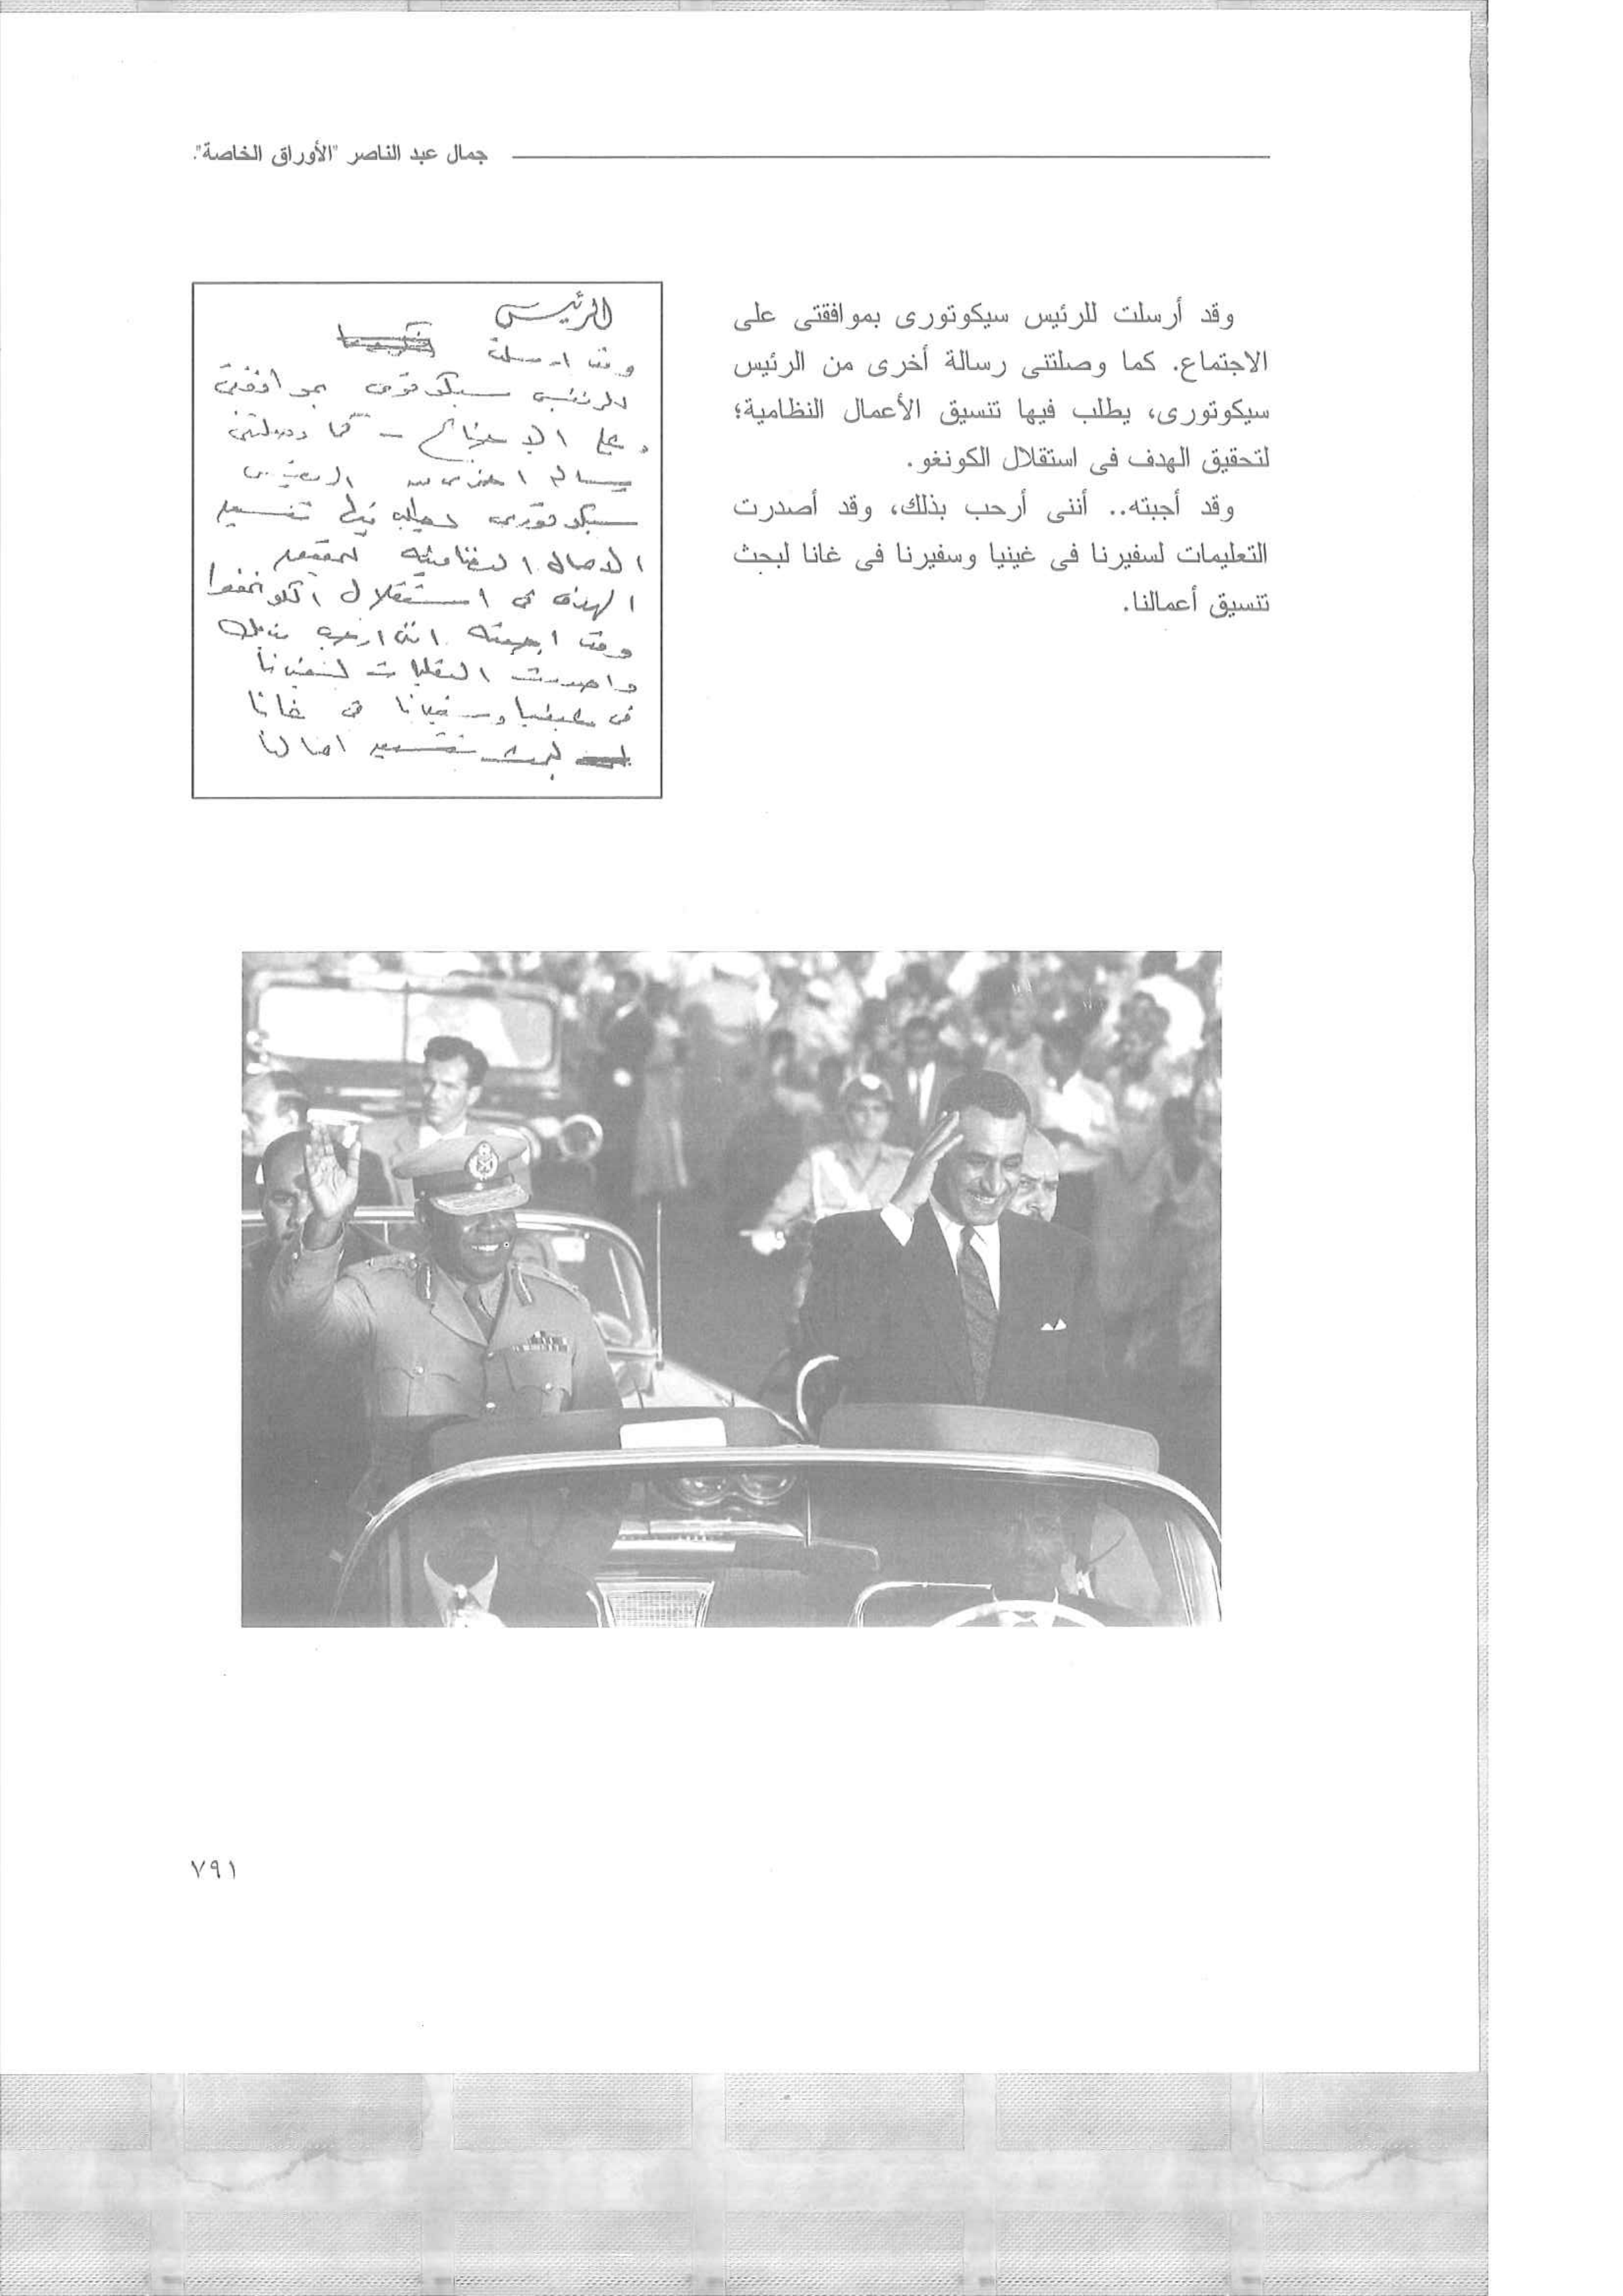 جمال عبد الناصر "الأوراق الخاصة".
وقد أرسلت للرئيس سيكوتورى بموافقتى على
الاجتماع. كما وصلتنى رسالة أخرى من الرئيس
سيكوتورى، يطلب فيها تنسيق الأعمال النظامية؛
لتحقيق الهدف فى استقلال الكونغو.
وقد أجبته.. أننى أرحب بذلك، وقد أصدرت
التعليمات لسفيرنا فى غينيا وسفيرنا فى غانا لبحث
تنسيق أعمالنا.
الرئيس
وقد ارسلت
للرئيس سيكوتورى بموافقتى
على الاجتماع - كما وصلتنى
رسالة اخرى من الرئيس
سيكوتورى يطلب فيها تنسيق
الاعمال النظامية لتحقيق
الهدف فى استقلال الكونغوا
وقد اجبته اننى ارحب بذلك
واصدرت التعليمات لسفيرنا
فى غينيا وسفيرنا فى غانا
لبحث تنسيق اعمالنا
٧٩١